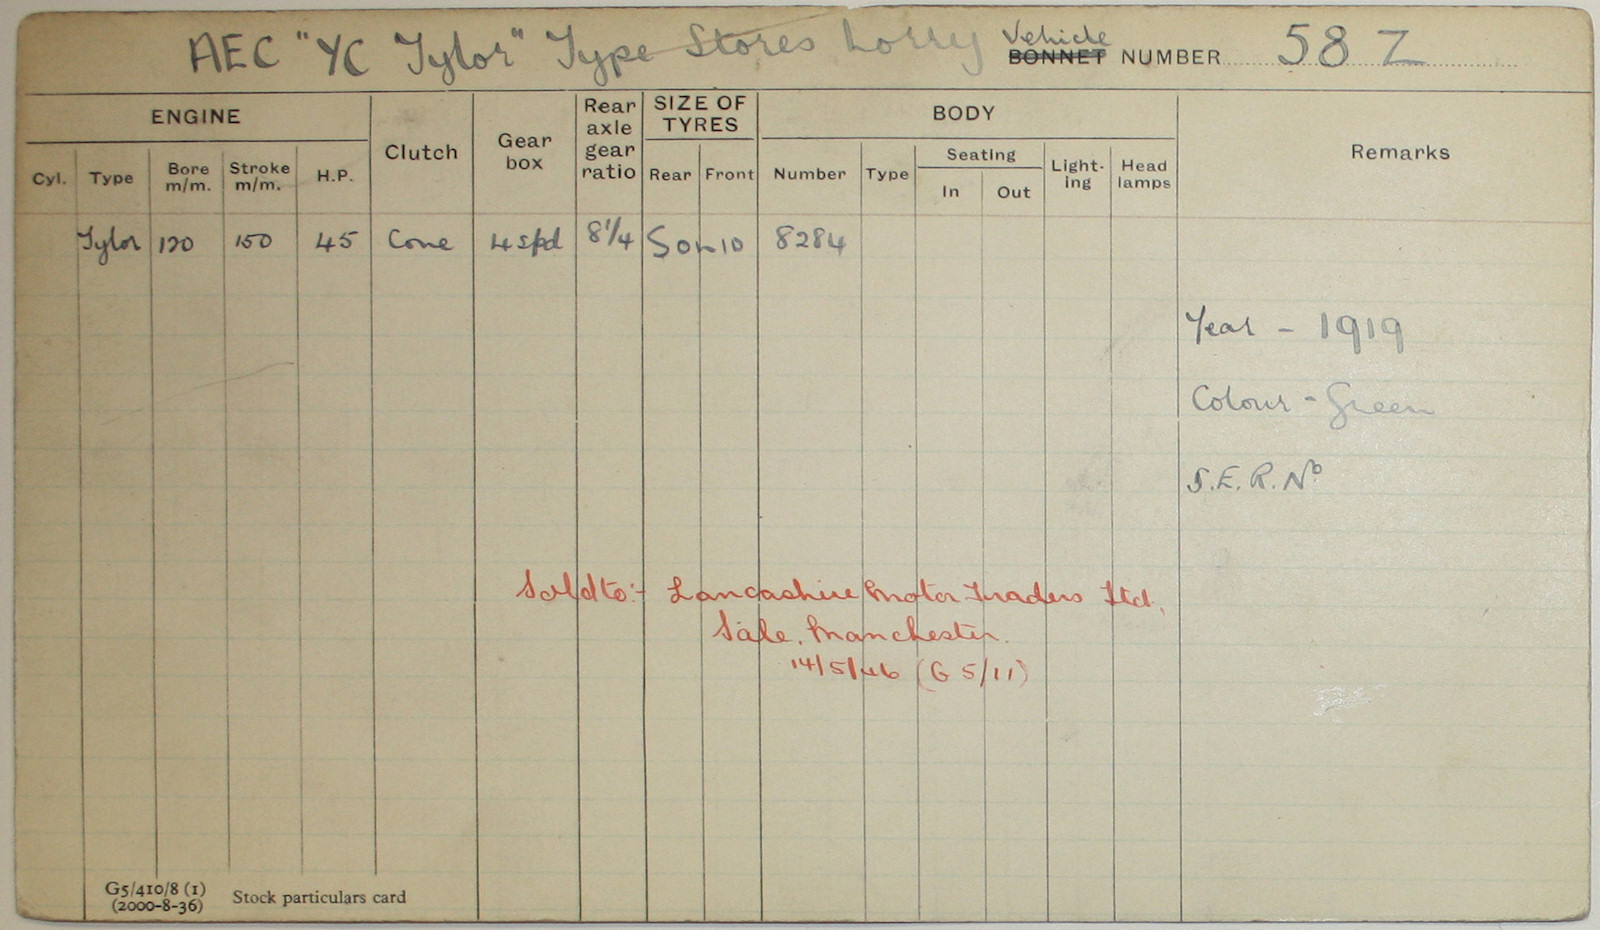 AEC "YC Tylor" Type Stores Lorry Vehicle BONNET NUMBER 58 Z
ENGINE Clutch Gear box Rear axle gear ratio SIZE OF TYRES BODY Remarks
Cyl. Type Bore m/m. Stroke m/m. H.P. Rear Front Number Type Seating In Out Light-ing Head lamps
Tylor 120 150 45 Cone 4 spd 8 1/4 Son 10 8284
Year - 1919
Colour - Green
S.E.R. No
Sold to:- Lancashire Motor Traders Ltd.
Sale, Manchester.
14/5/46 (G 5/11)
G5/410/8 (1)
(2000-8-36) Stock particulars card